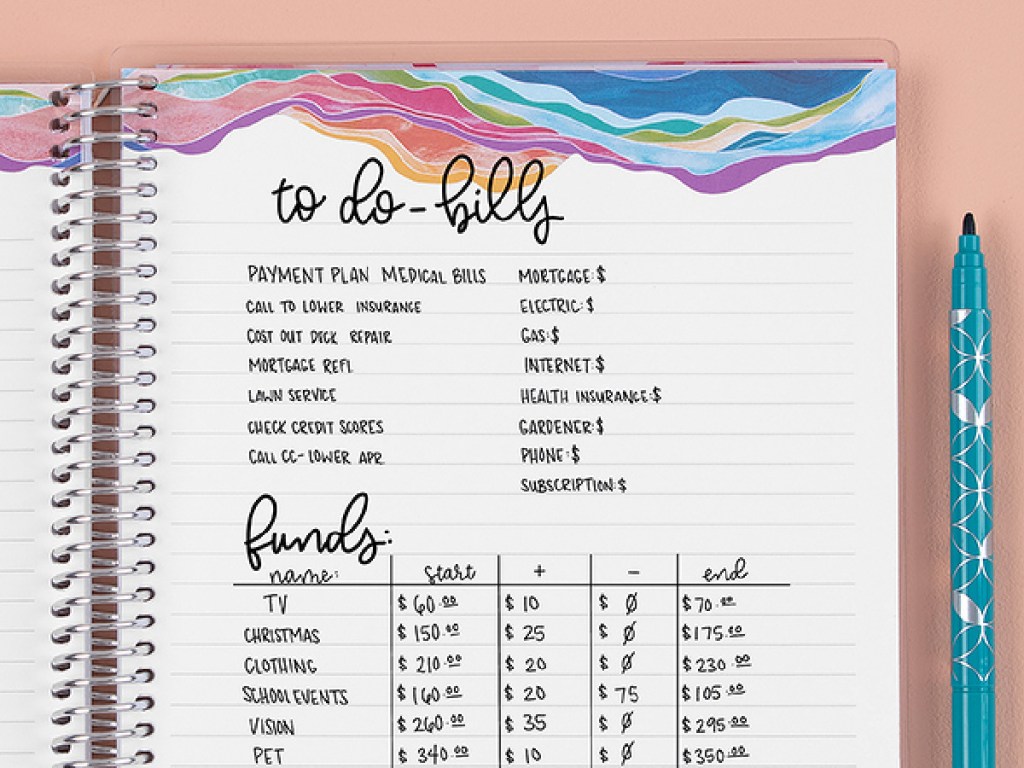 to do - bills
PAYMENT PLAN MEDICAL BILLS
CALL TO LOWER INSURANCE
COST OUT DECK REPAIR
MORTGAGE REFI
LAWN SERVICE
CHECK CREDIT SCORES
CALL CC - LOWER APR
MORTGAGE: $
ELECTRIC: $
GAS: $
INTERNET: $
HEALTH INSURANCE: $
GARDENER: $
PHONE: $
SUBSCRIPTION: $
funds:
name: start + - end
TV $ 60.00 $ 10 $ Ø $70.00
CHRISTMAS $ 150.00 $ 25 $ Ø $175.00
CLOTHING $ 210.00 $ 20 $ Ø $230.00
SCHOOL EVENTS $ 160.00 $ 20 $ 75 $105.00
VISION $ 260.00 $ 35 $ Ø $295.00
PET $ 340.00 $ 10 $ Ø $350.00